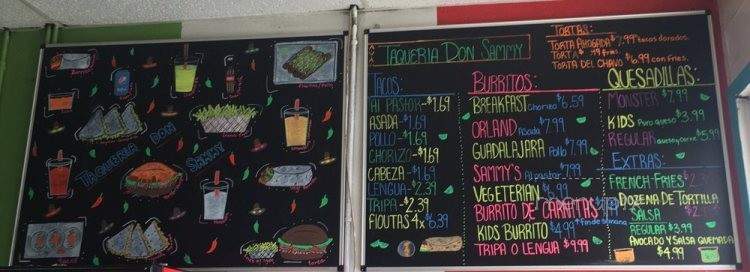 TAQUERIA DON SAMMY
TAQUERIA DON SAMMY
TORTAS:
TORTA AHOGADA $7.99 tacos dorados.
TORTA $7.99 fries.
TORTA DEL CHAVO $6.99 con fries.
TACOS:
Al PASTOR-$1.69
ASADA-$1.69
POLLO-$1.69
CHORIZO-$1.69
CABEZA-$1.69
LENGUA-$2.39
TRIPA-$2.39
FlOUTAS 4x $6.39
BURRITOS:
BREAKFAST Chorizo $6.59
ORLAND Asada $7.99
GUADALAJARA Pollo $7.99
SAMMY'S Al pastor $7.99
VEGETERIAN
BURRITO DE CARNITAS
KIDS BURRITO $4.99 *fin de semana
TRIPA O LENGUA $9.99
QUESADILLAS:
MONSTER $7.99
KIDS Puro queso $3.99
REGULAR queso y carne $5.99
EXTRAS:
FRENCH-FRIES
DOZENA DE TORTILLA
SALSA
REGULAR $3.99
AVOCADO Y SALSA QUEMADA
$4.99